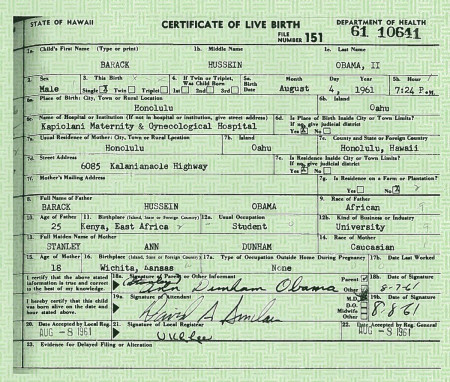 STATE OF HAWAII CERTIFICATE OF LIVE BIRTH DEPARTMENT OF HEALTH
FILE NUMBER 151 61 10641
1a. Child's First Name (Type or print) 1b. Middle Name 1c. Last Name
BARACK HUSSEIN OBAMA, II
2. Sex 3. This Birth 4. If Twin or Triplet, Was Child Born 5a. Birth Date Month Day Year 5b. Hour
Male Single X Twin Triplet 1st 2nd 3rd August 4, 1961 7:24 P.M.
6a. Place of Birth: City, Town or Rural Location 6b. Island
Honolulu Oahu
6c. Name of Hospital or Institution (If not in hospital or institution, give street address) 6d. Is Place of Birth Inside City or Town Limits? If no, give judicial district
Kapiolani Maternity & Gynecological Hospital Yes X No
7a. Usual Residence of Mother: City, Town or Rural Location 7b. Island 7c. County and State or Foreign Country
Honolulu Oahu Honolulu, Hawaii
7d. Street Address 7e. Is Residence Inside City or Town Limits? If no, give judicial district
6085 Kalanianaole Highway Yes X No
7f. Mother's Mailing Address 7g. Is Residence on a Farm or Plantation?
Yes No X
8. Full Name of Father 9. Race of Father
BARACK HUSSEIN OBAMA African
10. Age of Father 11. Birthplace (Island, State or Foreign Country) 12a. Usual Occupation 12b. Kind of Business or Industry
25 Kenya, East Africa Student University
13. Full Maiden Name of Mother 14. Race of Mother
STANLEY ANN DUNHAM Caucasian
15. Age of Mother 16. Birthplace (Island, State or Foreign Country) 17a. Type of Occupation Outside Home During Pregnancy 17b. Date Last Worked
18 Wichita, Kansas None
I certify that the above stated information is true and correct to the best of my knowledge. 18a. Signature of Parent or Other Informant Parent Other 18b. Date of Signature
(Stanley) Ann Dunham Obama 8-7-61
I hereby certify that this child was born alive on the date and hour stated above. 19a. Signature of Attendant M.D. D.O. Midwife Other 19b. Date of Signature
David A Sinclair 8-8-61
20. Date Accepted by Local Reg. 21. Signature of Local Registrar 22. Date Accepted by Reg. General
AUG -8 1961 U K Lee AUG -8 1961
23. Evidence for Delayed Filing or Alteration